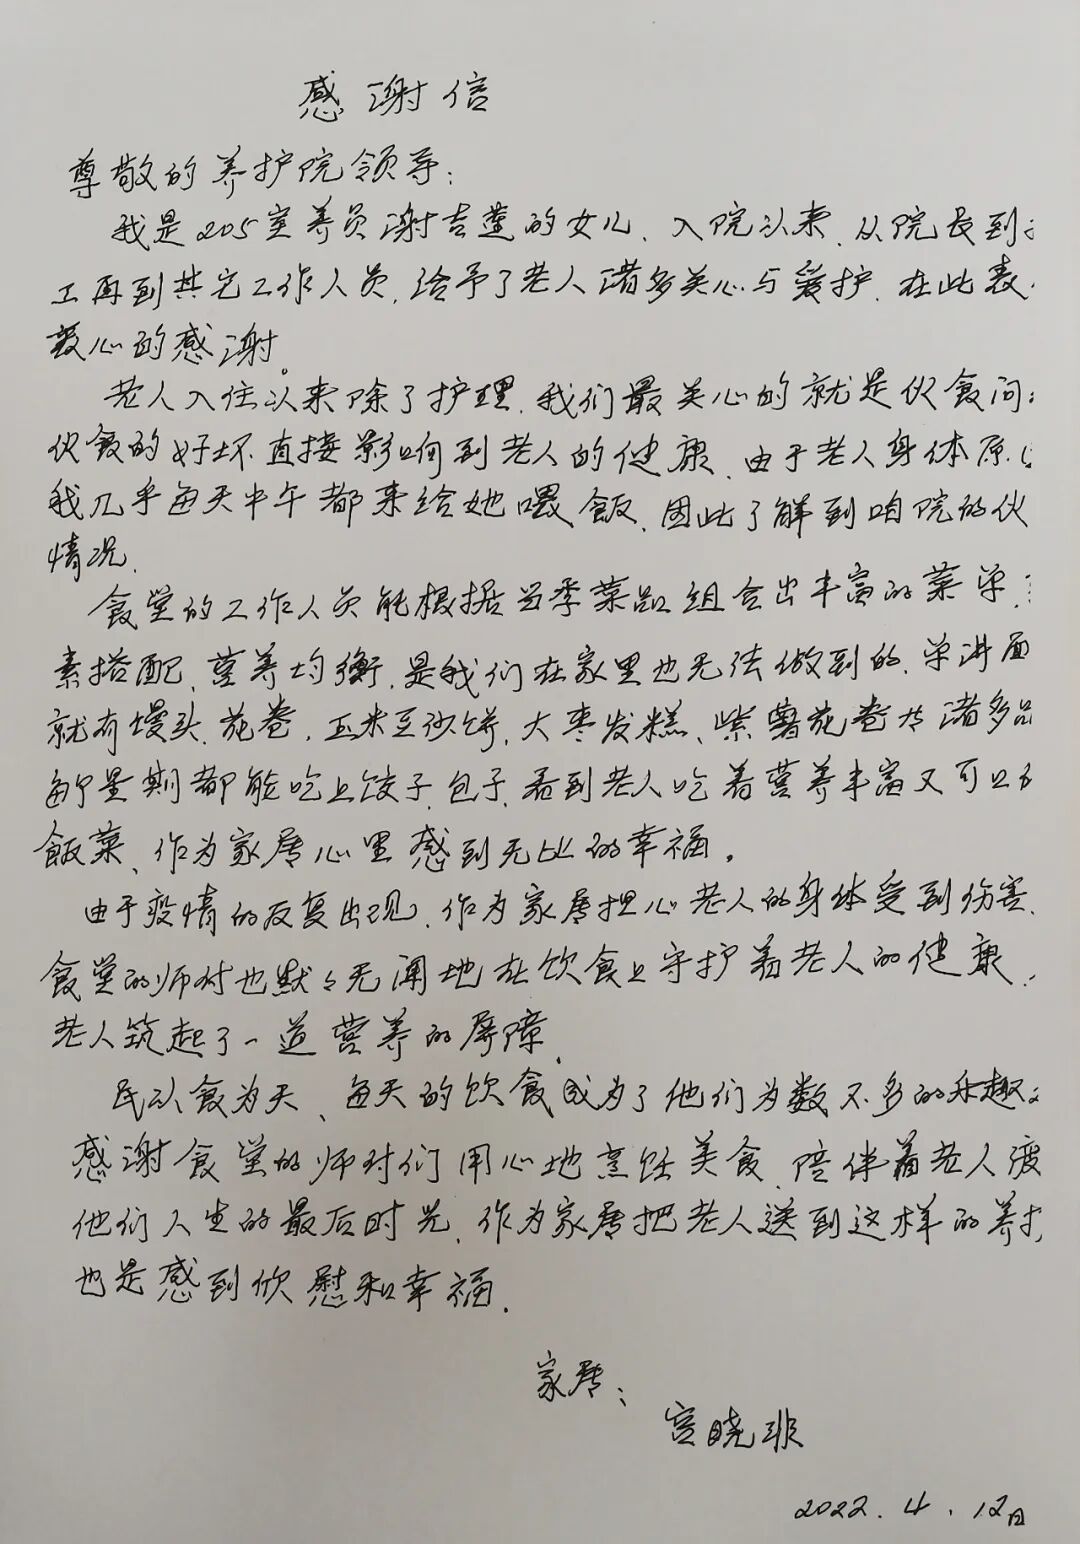 感谢信
尊敬的养护院领导：
我是205室养员谢吉莲的女儿、入院以来、从院长到
工再到其它工作人员、给予了老人诸多关心与爱护、在此表
衷心的感谢。
老人入住以来除了护理、我们最关心的就是伙食问
伙食的好坏直接影响到老人的健康、由于老人身体原
我几乎每天中午都来给她喂飯、因此了解到咱院的伙
情况、
食堂的工作人员能根据当季菜品组合出丰富的菜单、
素搭配、营养均衡、是我们在家里也无法做到的、单讲面
就有馒头、花卷、玉米豆沙饼、大枣发糕、紫薯花卷等诸多品
每个星期都能吃上饺子、包子、看到老人吃着营养丰富又可口
飯菜、作为家属心里感到无比的幸福。
由于疫情的反复出现、作为家属担心老人的身体受到伤害、
食堂的师付也默々无闻地在饮食上守护着老人的健康、
老人筑起了一道营养的屏障、
民以食为天、每天的饮食成为了他们为数不多的乐趣
感谢食堂的师付们用心地烹饪美食、陪伴着老人渡
他们人生的最后时光、作为家属把老人送到这样的养
也是感到欣慰和幸福、
家属：
宫晓非
2022.4.12日